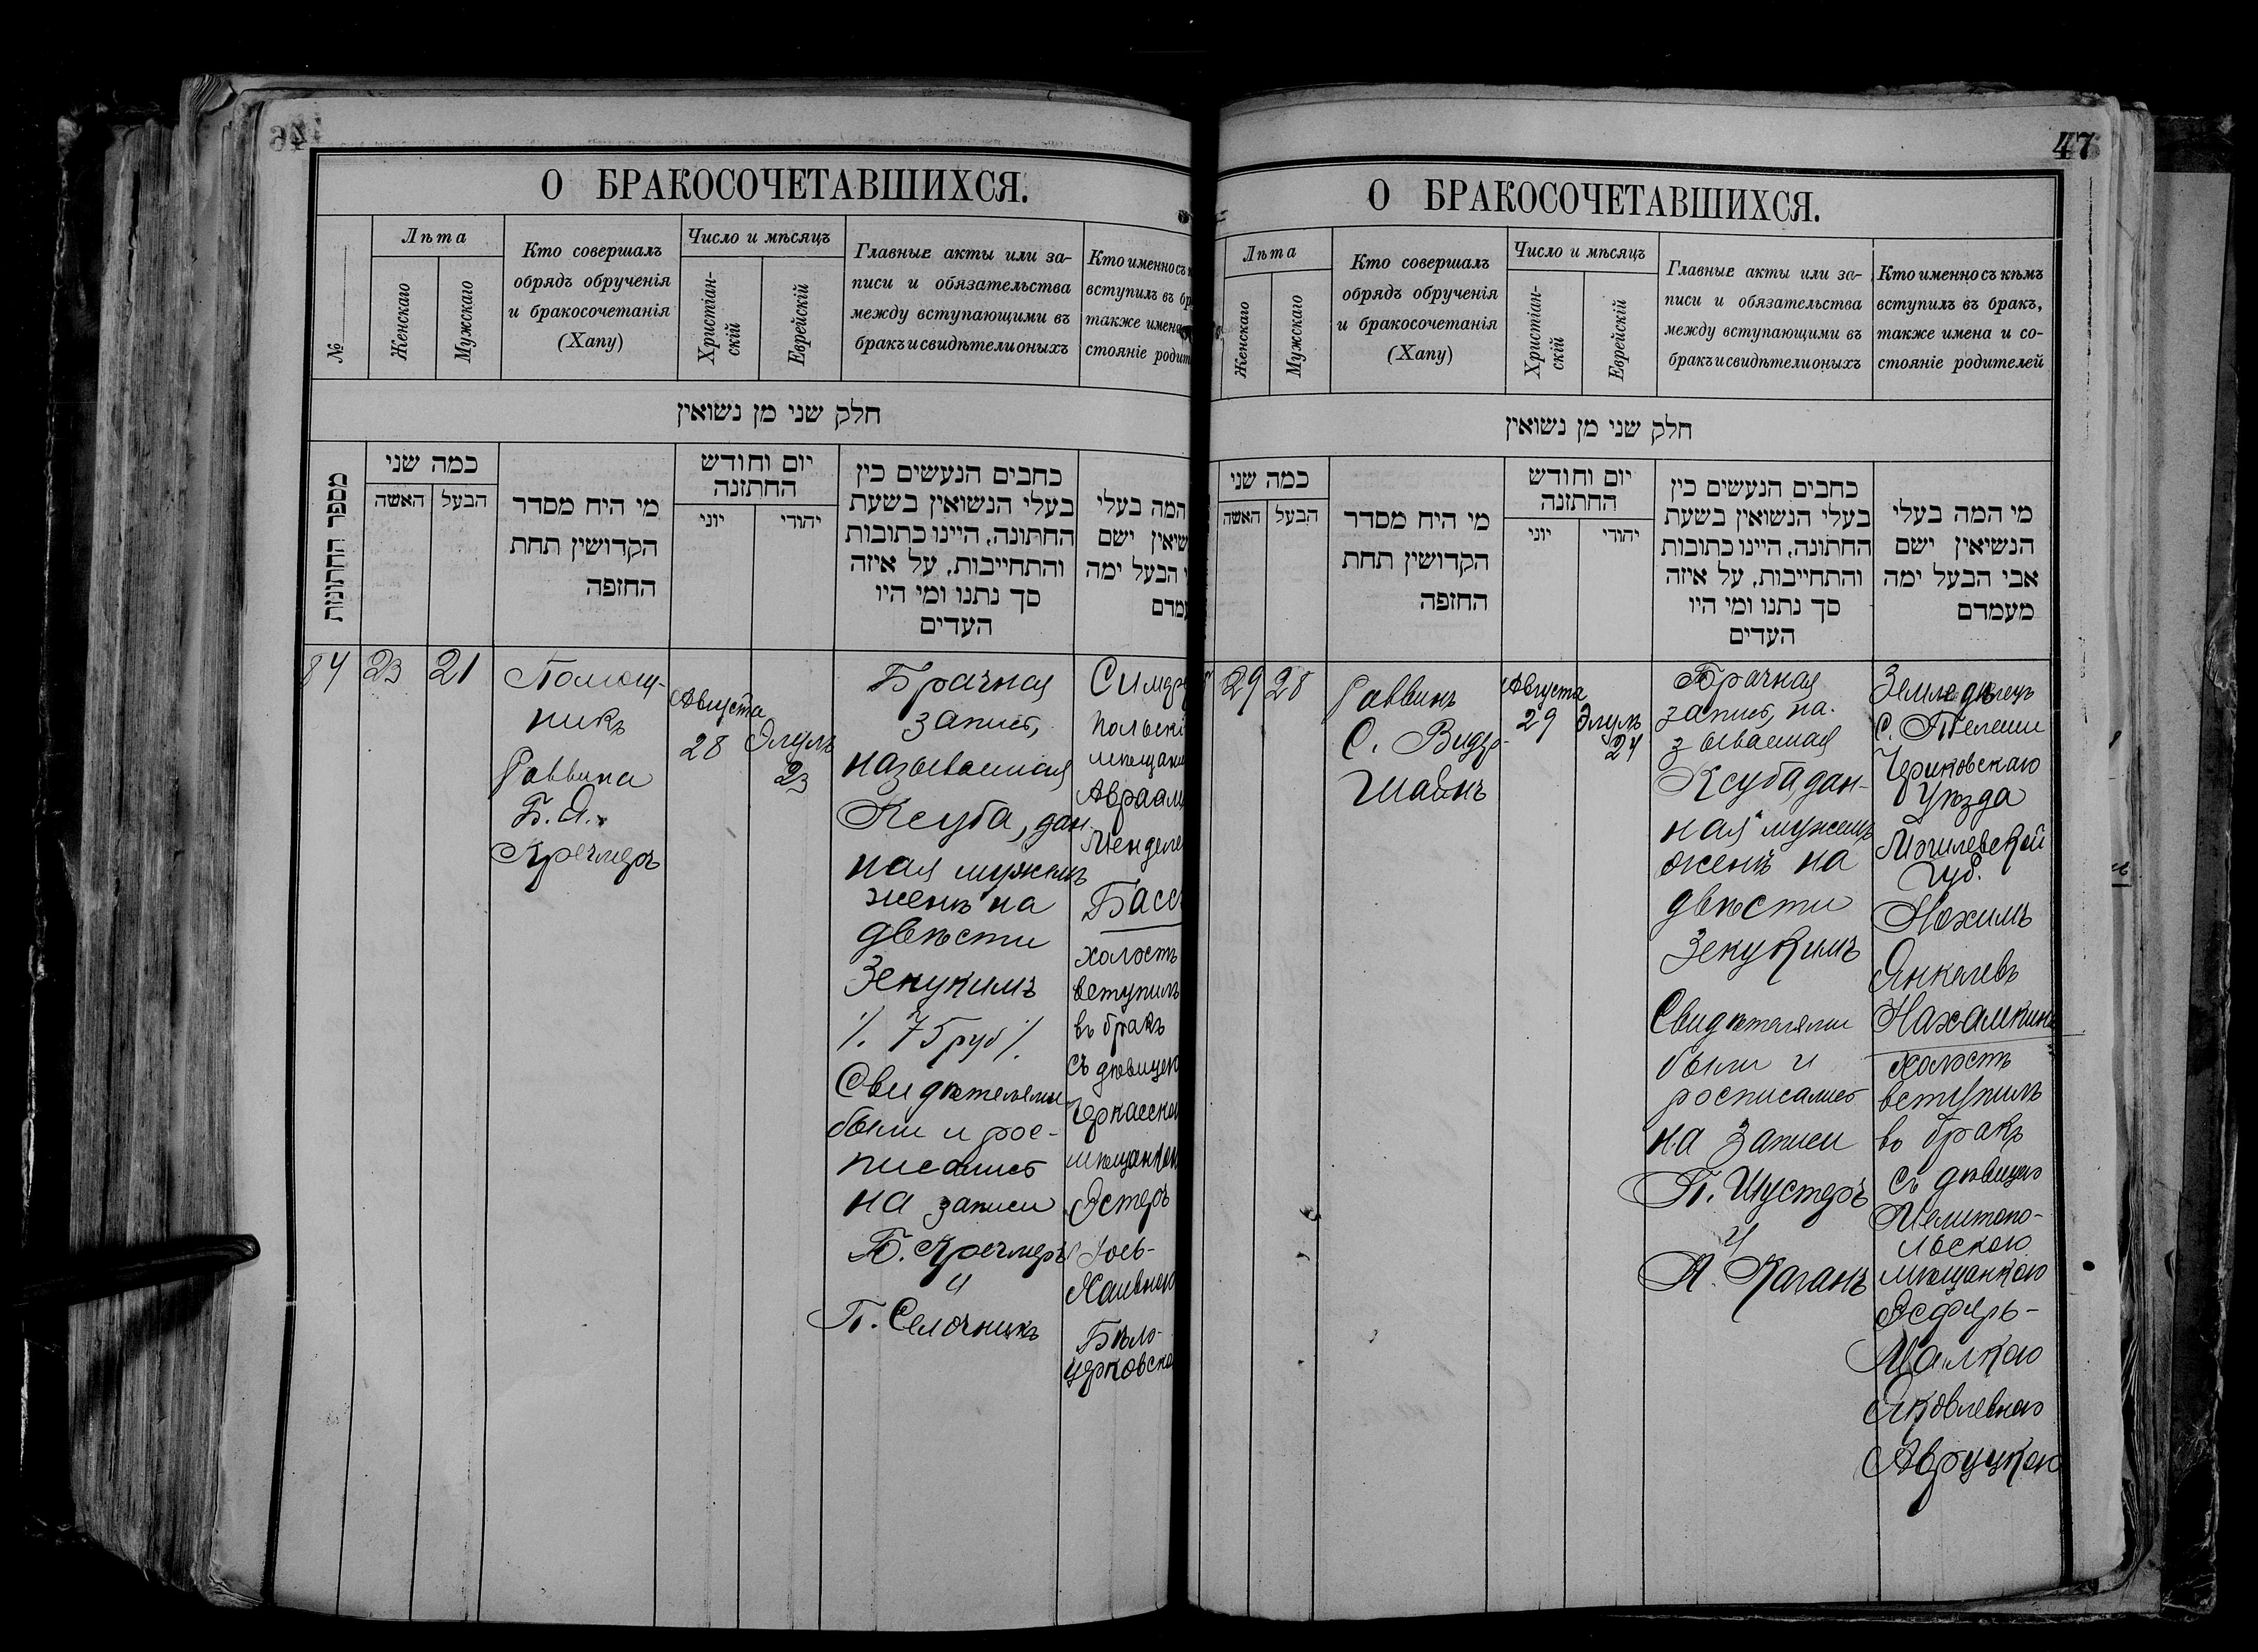 О БРАКОСОЧЕТАВШИХСЯ.
№
Лѣта
Женскаго
Мужскаго
Кто совершалъ
обрядъ обрученія
и бракосочетанія
(Хапу)
Число и мѣсяцъ
Христіан-
скій
Еврейскій
Главные акты или за-
писи и обязательства
между вступающими въ
бракъ и свидѣтели оныхъ
Кто именно съ
вступилъ въ бр
также имена
стояніе родит
חלק שני מן נשואין
מספר החתונות
כמה שני
האשה
הבעל
מי היח מסדר
הקדושין תחת
החזפה
יום וחודש
החתזנה
יוני
יהודי
כחבים הנעשים כין
בעלי הנשואין בשעת
החתונה, היינו כתובות
והתחייבות, על איזה
סך נתנו ומי היו
העדים
המה בעלי
שיאין ישם
י הבעל ימה
עמדם
84
23
21
Помощ-
никъ
Раввина
Б. Я.
Кречмеръ
Августа
28
Элулъ
23
Брачная
запись,
называемая
Ксуба, дан-
ная мужемъ
женѣ на
двѣсти
Зекукимъ
/. 75 руб /.
Свидѣтелями
были и рос-
писались
на записи
Б. Кречмеръ
и
П. Селочникъ
Симфе
польскі
мѣщани
Авраам
Менделе
Басс
холостъ
вступилъ
въ бракъ
съ дѣвицею
Черкасско
мѣщанкою
Эстеръ
Хаивною
Бѣло-
церковско
47
О БРАКОСОЧЕТАВШИХСЯ.
Лѣта
Женскаго
Мужскаго
Кто совершалъ
обрядъ обрученія
и бракосочетанія
(Хапу)
Число и мѣсяцъ
Христіан-
скій
Еврейскій
Главные акты или за-
писи и обязательства
между вступающими въ
бракъ и свидѣтели оныхъ
Кто именно съ кѣмъ
вступилъ въ бракъ,
также имена и со-
стояніе родителей
חלק שני מן נשואין
כמה שני
האשה
הבעל
מי היח מסדר
הקדושין תחת
החזפה
יום וחודש
החתזנה
יוני
יהודי
כחבים הנעשים כין
בעלי הנשואין בשעת
החתונה, היינו כתובות
והתחייבות, על איזה
סך נתנו ומי היו
העדים
מי המה בעלי
הנשיאין ישם
אבי הבעל ימה
מעמדם
29
28
Раввинъ
С. Видр-
шайнъ
Августа
29
Элулъ
24
Брачная
запись, на-
зываемая
Ксуба, дан-
ная мужемъ
женѣ на
двѣсти
Зекукимъ
Свидѣтелями
были и
росписались
на записи
П. Шустеръ
и
А. Каганъ
Земледѣлецъ
с. Телеши
Чериковскаго
Уѣзда
Могилевской
Губ.
Нохимъ
Янкелевъ
Нахамкинъ
холостъ
вступилъ
въ бракъ
съ дѣвицею
Мелитопо-
льскою
мѣщанкою
Эсфирь-
Малкою
Яковлевною
Авруцкою